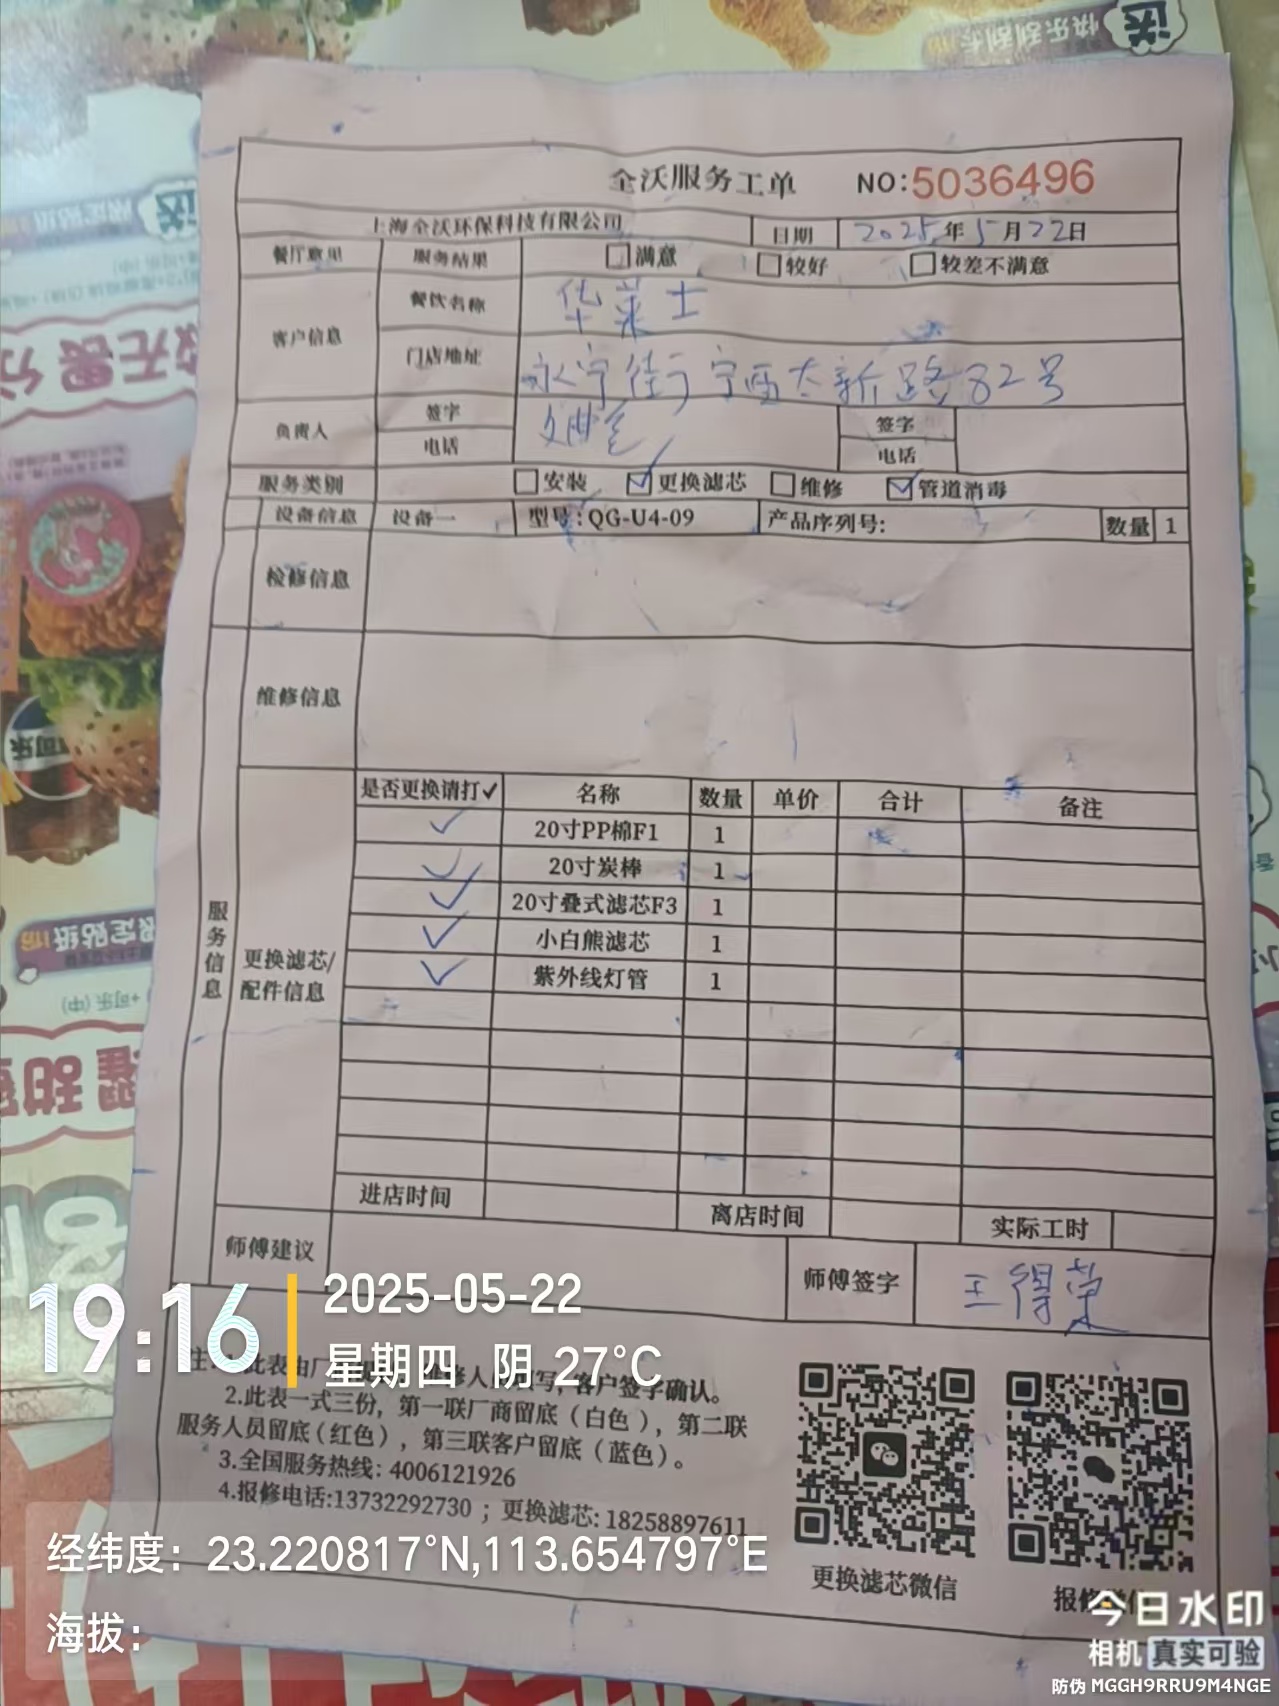 全沃服务工单 NO:5036496
上海全沃环保科技有限公司 日期 2025年5月22日
餐厅意见 服务结果 □满意 □较好 □较差不满意
客户信息 餐饮名称 华莱士
门店地址 永宁街宁西大新路82号
负责人 签字 签字
电话 电话
服务类别 □安装 ☑更换滤芯 □维修 ☑管道消毒
设备信息 设备一 型号:QG-U4-09 产品序列号: 数量 1
检修信息
维修信息
服务信息
更换滤芯/
配件信息
是否更换请打✓ 名称 数量 单价 合计 备注
✓ 20寸PP棉F1 1
✓ 20寸炭棒 1
✓ 20寸叠式滤芯F3 1
✓ 小白熊滤芯 1
✓ 紫外线灯管 1
进店时间 离店时间 实际工时
师傅建议 师傅签字 王得荣
注:1.此表由厂 人 写,客户签字确认。
2.此表一式三份，第一联厂商留底（白色），第二联
服务人员留底（红色），第三联客户留底（蓝色）。
3.全国服务热线: 4006121926
4.报修电话:13732292730 ；更换滤芯: 18258897611
更换滤芯微信
报修
19:16
2025-05-22
星期四 阴 27°C
经纬度：23.220817°N,113.654797°E
海拔：
今日水印
相机 真实可验
防伪 MGGH9RRU9M4NGE
送
快乐刮刮卡
可乐